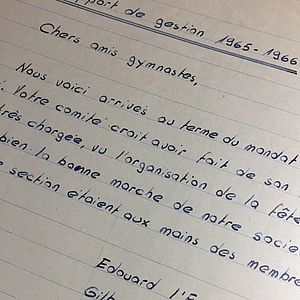 pport de gestion 1965-1966
Chers amis gymnastes,
Nous voici arrivés au terme du mandat
. Votre comité croit avoir fait de son
très chargée, vu l'organisation de la fête
bien. la bonne marche de notre societ
e section étaient aux mains des membre
Edouard l'E
Gilb